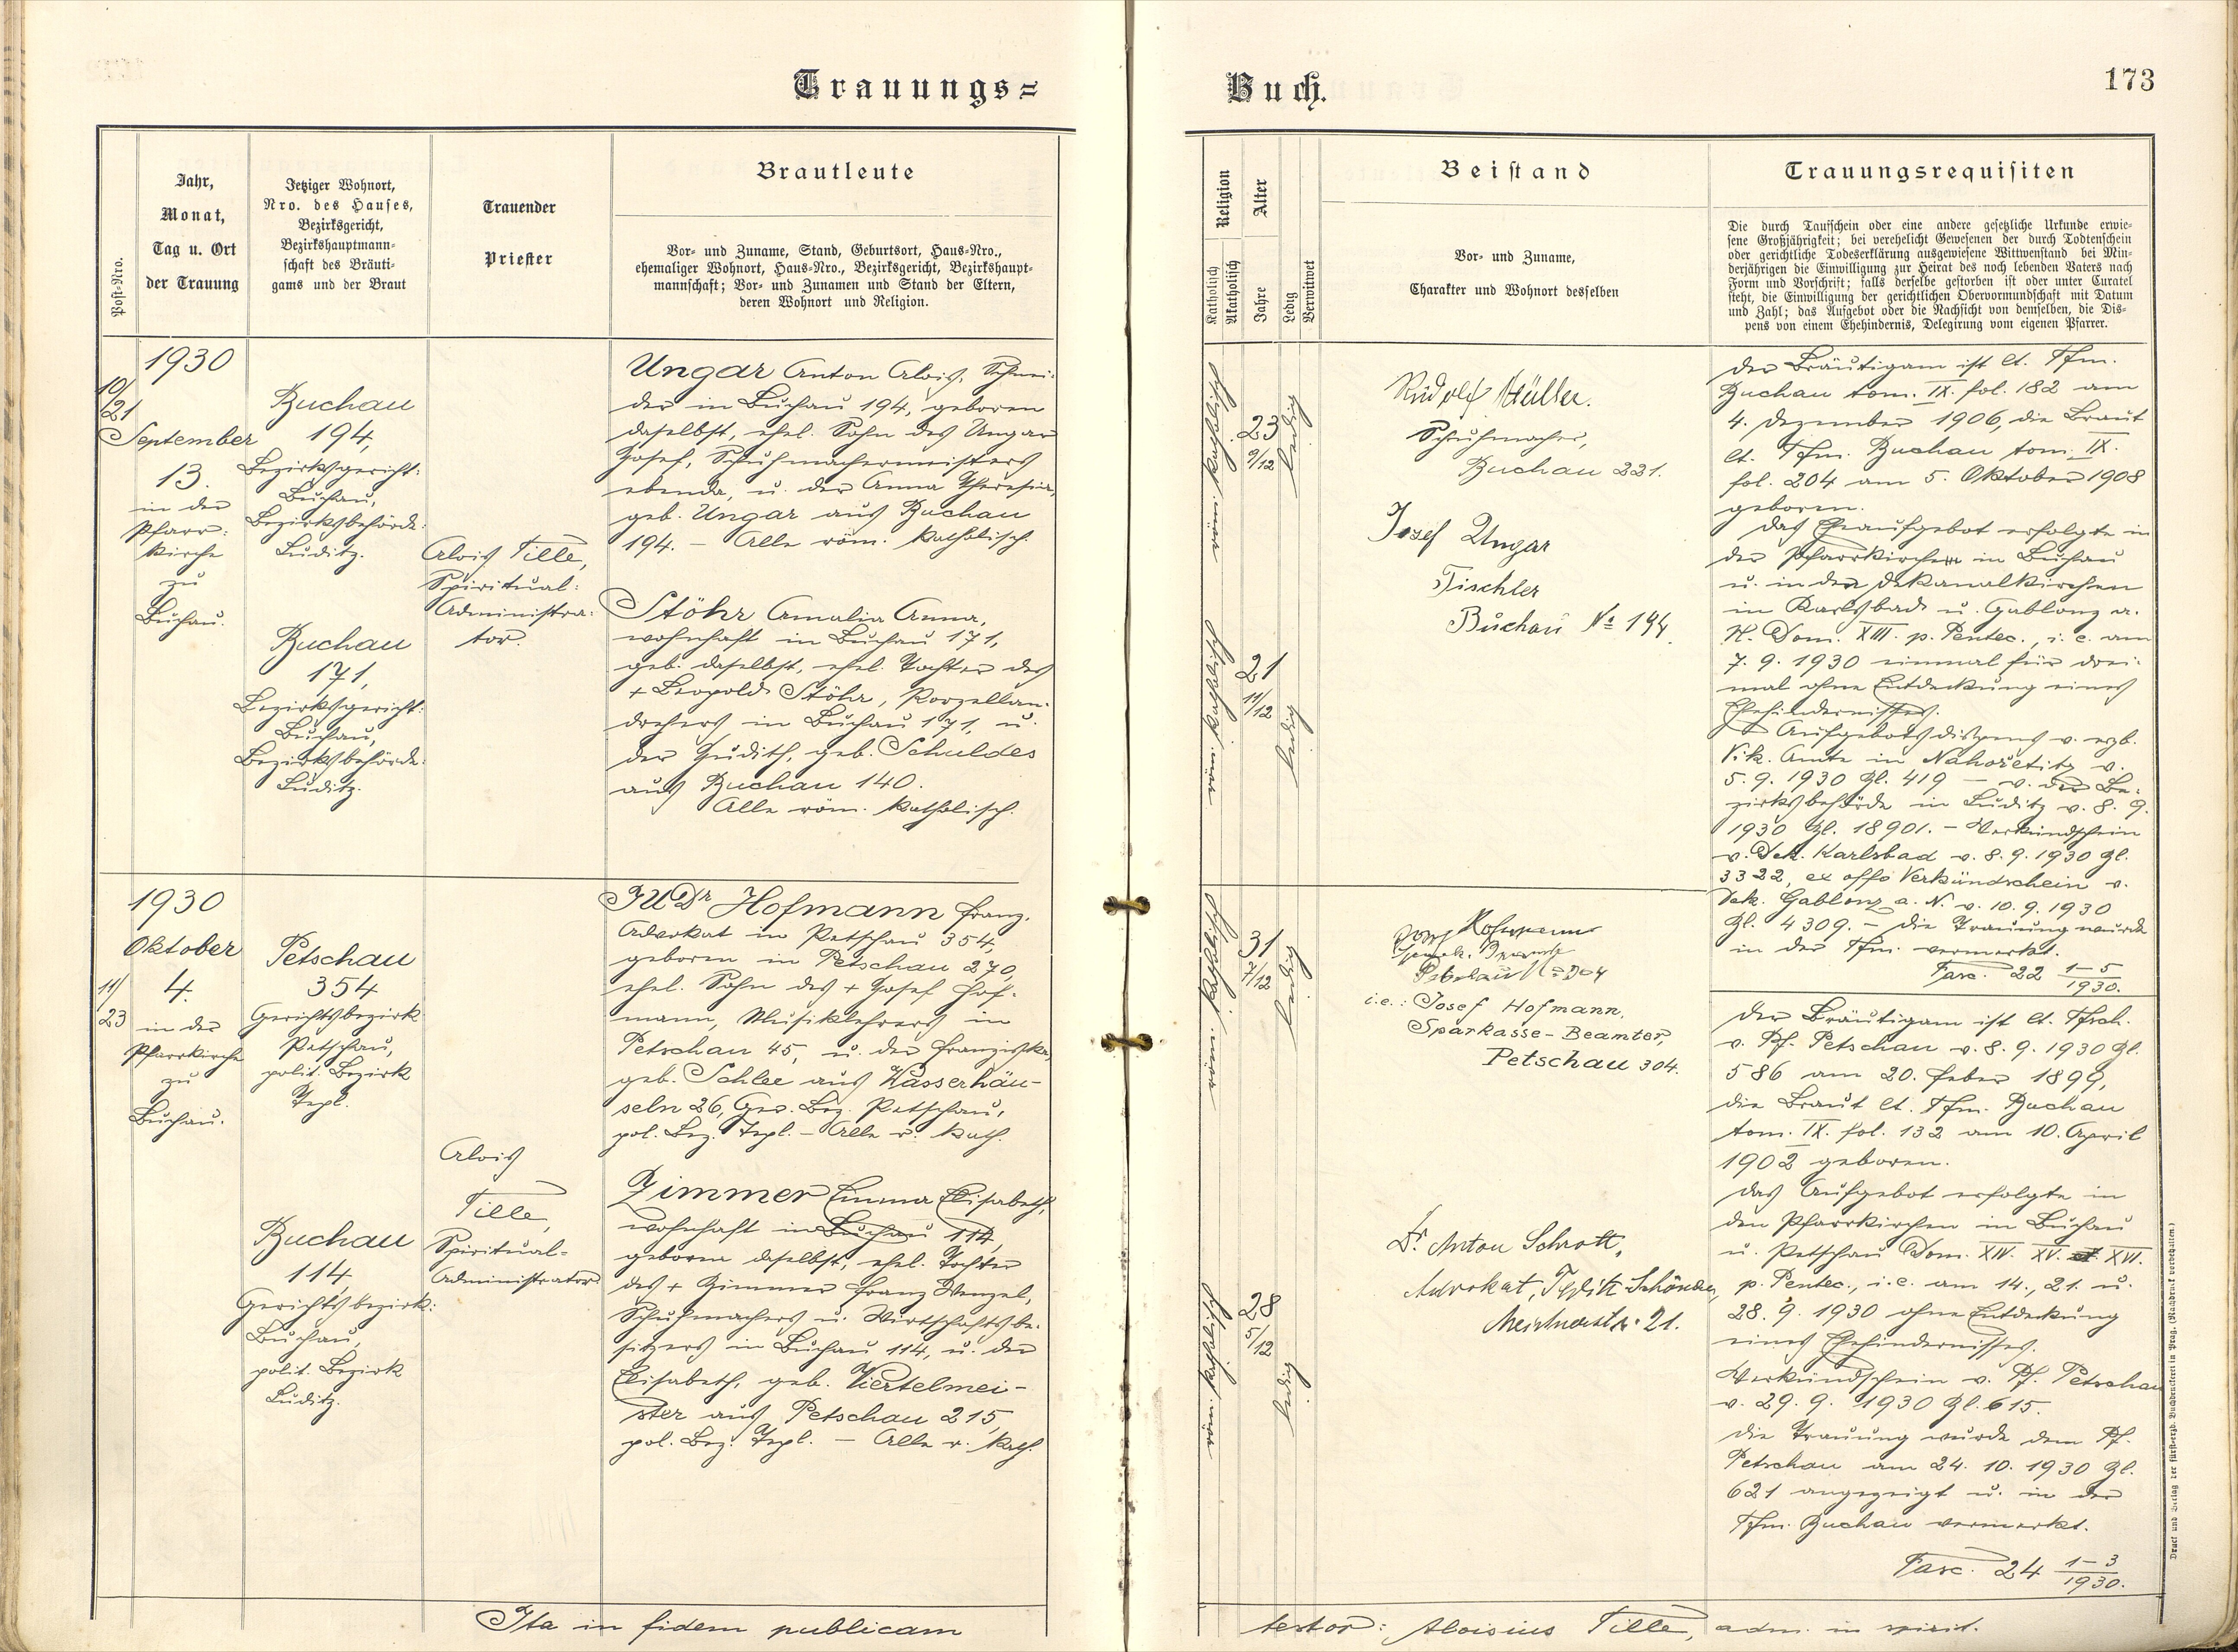 Trauungs=
Buch.
173
Post-Nro.
Jahr,
Monat,
Tag u. Ort
der Trauung
Jetziger Wohnort,
Nro. des Hauses,
Bezirksgericht,
Bezirkshauptmann-
schaft des Bräuti-
gams und der Braut
Trauender
Priester
Brautleute
Vor- und Zuname, Stand, Geburtsort, Haus-Nro.,
ehemaliger Wohnort, Haus-Nro., Bezirksgericht, Bezirkshaupt-
mannschaft; Vor- und Zunamen und Stand der Eltern,
deren Wohnort und Religion.
Religion
Katholisch
Akatholisch
Alter
Jahre
Ledig
Verwitwet
Beistand
Vor- und Zuname,
Charakter und Wohnort desselben
Trauungsrequisiten
Die durch Taufschein oder eine andere gesetzliche Urkunde erwie-
sene Großjährigkeit; bei verehelicht Gewesenen der durch Todtenschein
oder gerichtliche Todeserklärung ausgewiesene Wittwenstand bei Min-
derjährigen die Einwilligung zur Heirat des noch lebenden Vaters nach
Form und Vorschrift; falls derselbe gestorben ist oder unter Curatel
steht, die Einwilligung der gerichtlichen Obervormundschaft mit Datum
und Zahl; das Aufgebot oder die Nachsicht von demselben, die Dis-
pens von einem Ehehindernis, Delegirung vom eigenen Pfarrer.
10/21
1930
September
13.
in der
Pfarr-
kirche
zu
Buchau.
Buchau
194,
Bezirksgericht:
Buchau,
Bezirksbehörde:
Luditz.
Buchau
171,
Bezirksgericht:
Buchau,
Bezirksbehörde:
Luditz.
Alois Tille,
Spiritual-
Administra-
tor.
Ungar Anton Alois, Schnei-
der in Buchau 194, geboren
daselbst, ehel. Sohn des Ungar
Josef, Schuhmachermeisters
ebenda, u. der Anna Theresia,
geb. Ungar aus Buchau
194. – Alle röm. katholisch.
Stöhr Amalia Anna,
wohnhaft in Buchau 171,
geb. daselbst, ehel. Tochter des
+ Leopold Stöhr, Porzellan-
drehers in Buchau 171, u.
der Judith, geb. Schuldes
aus Buchau 140.
Alle röm. katholisch.
röm. katholisch
23
9/12
ledig
röm. katholisch
21
11/12
ledig
Rudolf Müller.
Schuhmacher,
Buchau 221.
Josef Ungar
Tischler
Buchau № 194.
Der Bräutigam ist lt. Tfm.
Buchau tom. IX. fol. 182 am
4. Dezember 1906, die Braut
lt. Tfm. Buchau tom. IX.
fol. 204 am 5. Oktober 1908
geboren.
Das Eheaufgebot erfolgte in
der Pfarrkirche in Buchau
u. in den Dekanalkirchen
in Karlsbad u. Gablonz a.
N. Dom. XIII. p. Pentec., i. e. am
7. 9. 1930 einmal für drei-
mal ohne Entdeckung eines
Ehehindernisses.
Aufgebotsdispens v. erzb.
Vik. Amte in Nahořetitz v.
5. 9. 1930 Zl. 419 – v. der Be-
zirksbehörde in Luditz v. 8. 9.
1930 Zl. 18901. – Verkündschein
v. Dek. Karlsbad v. 8. 9. 1930 Zl.
3322, ex offo Verkündschein v.
Dek. Gablonz a. N. v. 10. 9. 1930
Zl. 4309. – Die Trauung wurde
in der Tfm. vermerkt.
Fasc. 22 1–5/1930.
11/23
1930
Oktober
4.
in der
Pfarrkirche
zu
Buchau.
Petschau
354
Gerichtsbezirk
Petschau,
polit. Bezirk
Tepl.
Buchau
114,
Gerichtsbezirk:
Buchau,
polit. Bezirk
Luditz.
Alois
Tille,
Spiritual-
Administrator
JUDr Hofmann Franz,
Advokat in Petschau 354,
geboren in Petschau 270,
ehel. Sohn des + Josef Hof-
mann, Musiklehrers in
Petschau 45, u. der Franziska,
geb. Schlee aus Wasserhäu-
seln 26, Ger. Bez. Petschau,
pol. Bez. Tepl. – Alle r. kath.
Zimmer Emma Elisabeth,
wohnhaft in Buchau 114,
geboren daselbst, ehel. Tochter
des + Zimmer Franz Wenzel,
Schuhmachers u. Wirtschaftsbe-
sitzers in Buchau 114, u. der
Elisabeth, geb. Viertelmei-
ster aus Petschau 215,
pol. Bez. Tepl. – Alle r. kath.
röm. katholisch
31
7/12
ledig
röm. katholisch
28
5/12
ledig
Josef Hofmann
Petschau № 304
i. e.: Josef Hofmann,
Sparkasse-Beamter,
Petschau 304.
Dr. Anton Schrott,
Advokat, Teplitz-Schönau,
21.
Der Bräutigam ist lt. Tfsch.
v. Pf. Petschau v. 8. 9. 1930 Zl.
586 am 20. Feber 1899,
die Braut lt. Tfm. Buchau
tom. IX. fol. 132 am 10. April
1902 geboren.
Das Aufgebot erfolgte in
den Pfarrkirchen in Buchau
u. Petschau Dom. XIV. XV. XVI.
p. Pentec., i. e. am 14., 21. u.
28. 9. 1930 ohne Entdeckung
eines Ehehindernisses.
Verkündschein v. Pf. Petschau
v. 29. 9. 1930 Zl. 615.
Die Trauung wurde dem Pf.
Petschau am 24. 10. 1930 Zl.
621 angezeigt u. in der
Tfm. Buchau vermerkt.
Fasc. 24 1–3/1930.
Ita in fidem publicam
testor: Aloisius Tille, adm. in spirit.
Druck und Verlag der fürsterzb. Buchdruckerei in Prag. (Nachdruck vorbehalten.)